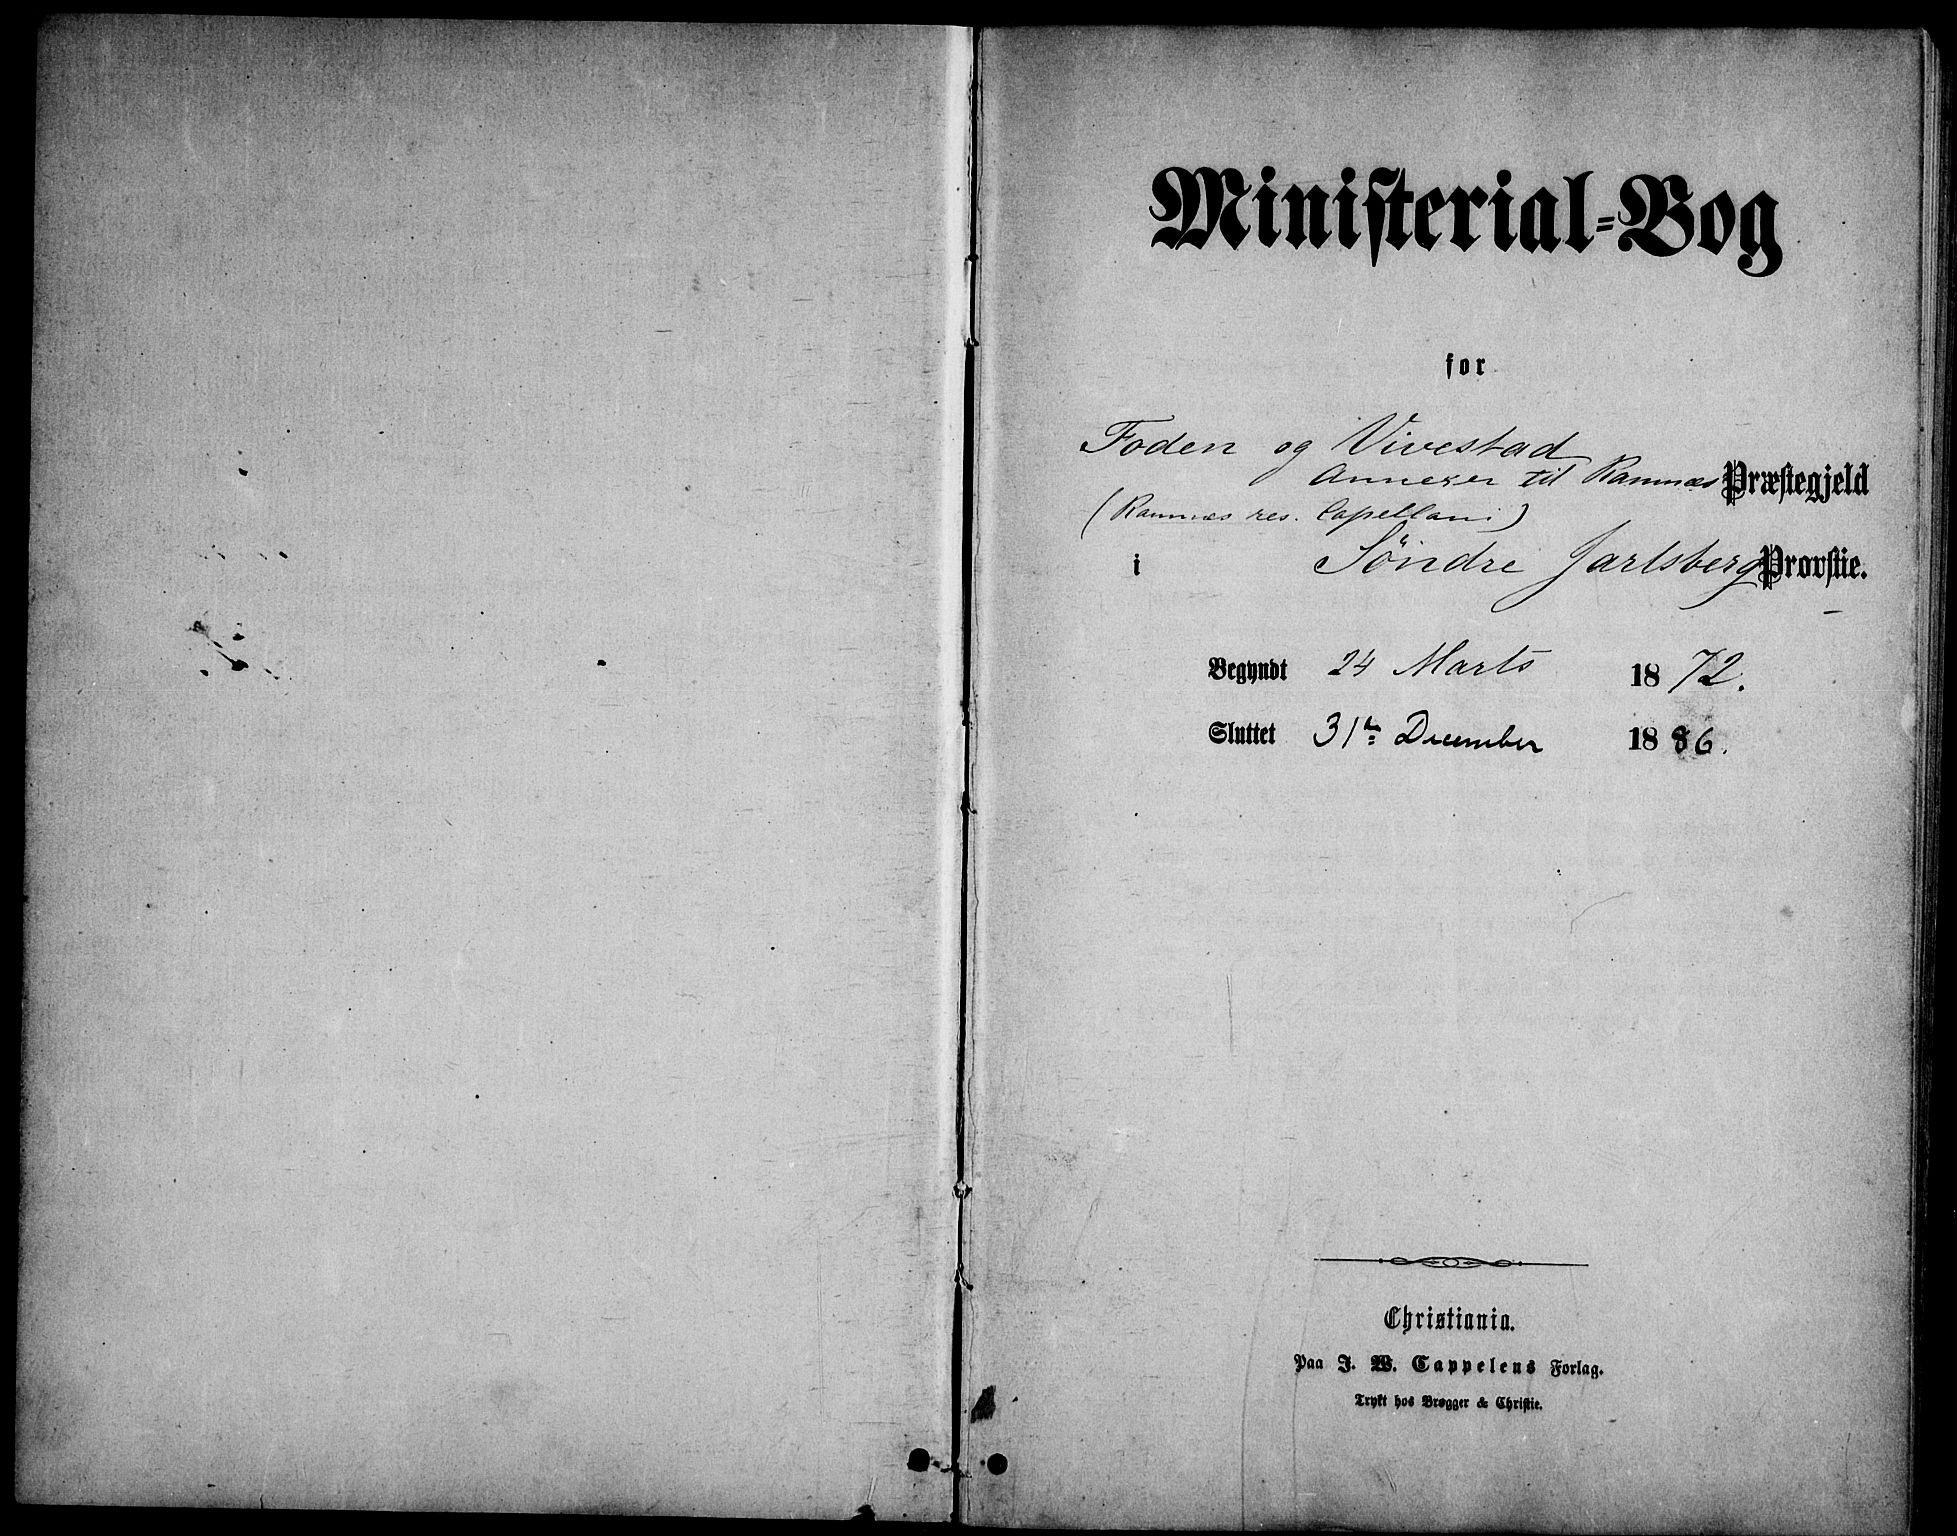 Ministerial-Bog
for
Foden og Vivestad
Annexer til Ramnæs Præstegjeld
(Ramnæs res. Capellani)
i Søndre Jarlsberg Provstie.
Begyndt 24 Marts 1872.
Sluttet 31te December 1886.
Christiania.
Paa J. W. Cappelens Forlag.
Trykt hos Brøgger & Christie.